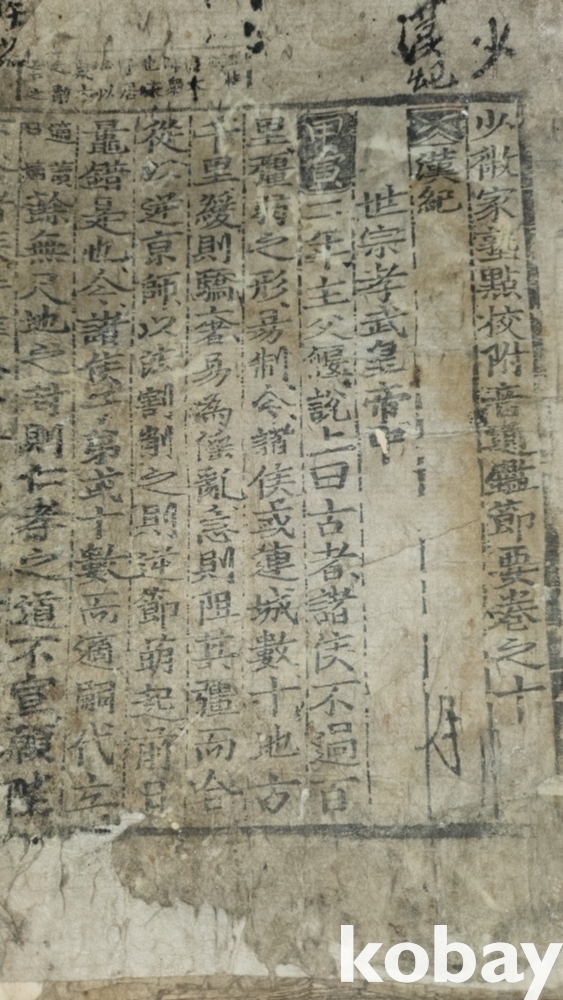 少
漢紀
少微家塾點校附音通鑑節要卷之十
漢紀
世宗孝武皇帝中
甲寅二年主父偃說上曰古者諸侯不過百
里彊弱之形易制今諸侯或連城數十地方
千里緩則驕奢易為淫亂急則阻其彊而合
從以逆京師以法割削之則逆節萌起前日
鼂錯是也今諸侯子弟或十數而適嗣代立
餘無尺地之封則仁孝之道不宣願陛
kobay